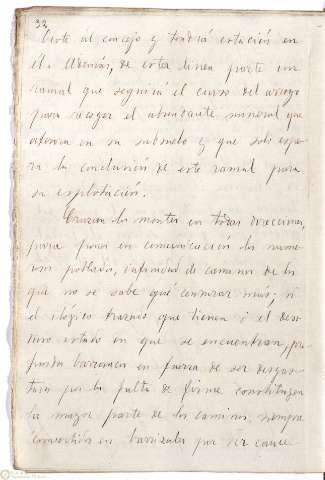 32
Corte al concejo y tendrá estación en
él. Además, de esta línea parte un
ramal que seguirá el curso del arroyo
para recoger el abundante mineral que
aflora en su subsuelo y que solo espe-
ra la conclusión de este ramal para
su explotación.
Cruzan los montes en todas direcciones,
para poner en comunicación los nume-
rosos poblados, infinidad de caminos de los
que no se sabe qué censurar más; si
el ilógico trazado que tienen ó el desas-
troso estado en que se encuentran, pro-
fundos barrancos en fuerza de ser desgas-
tados por la falta de firme constituyen
la mayor parte de los caminos, siempre
convertidos en barrizales por ser cauce